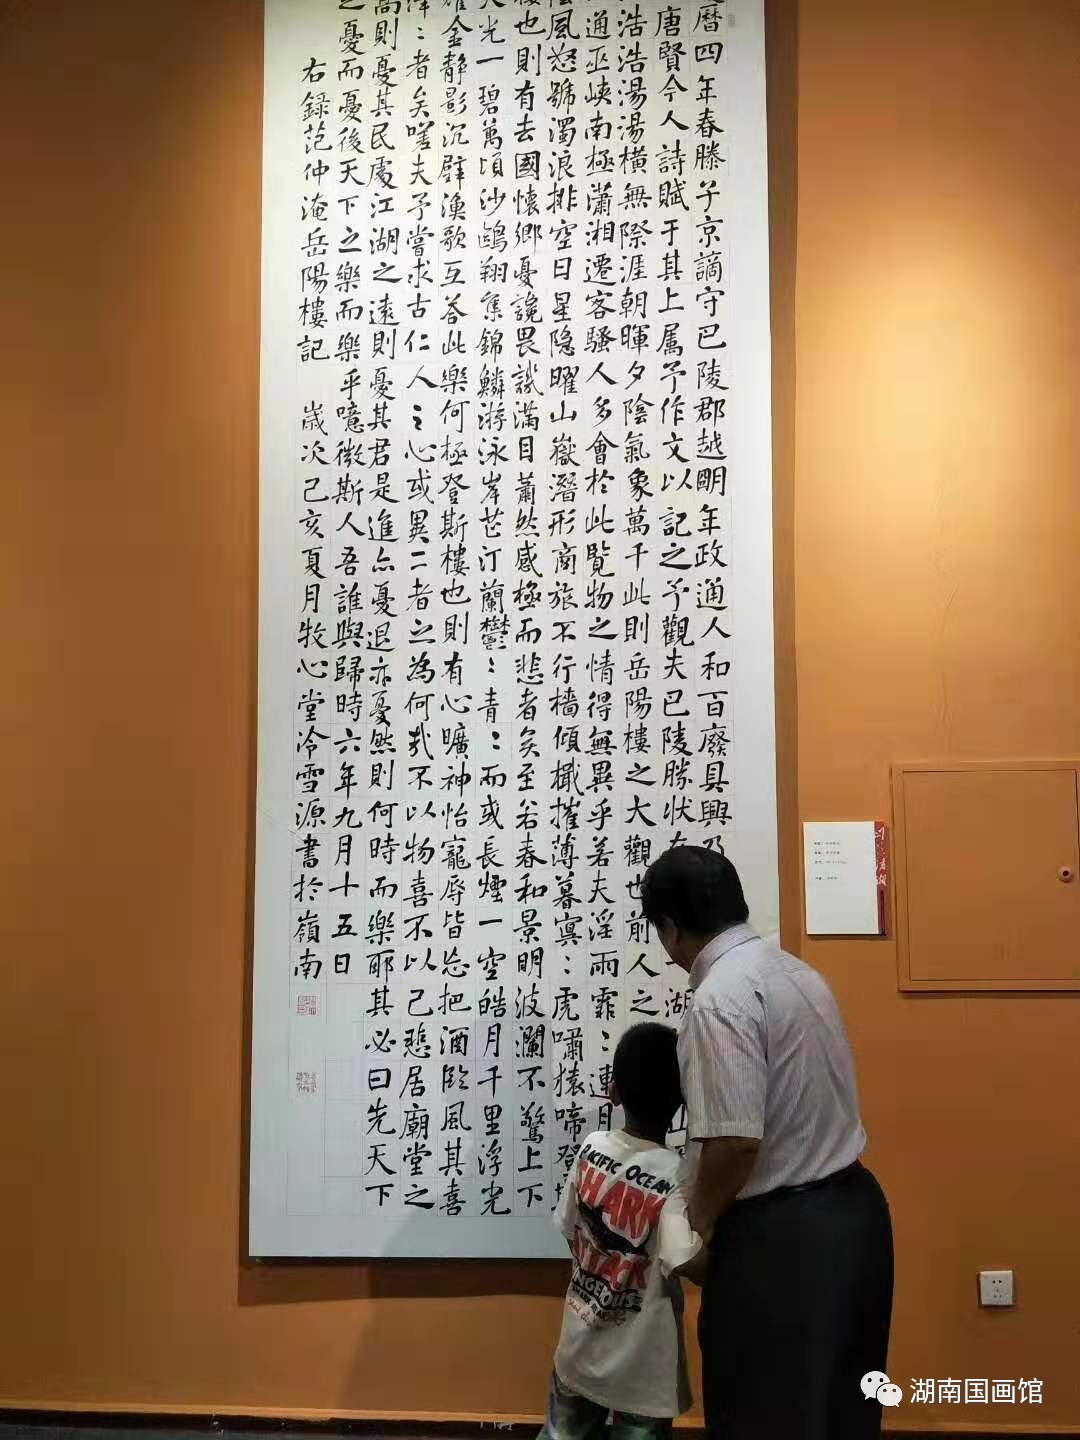 曆四年春滕子京謫守巴陵郡越明年政通人和百廢具興乃
唐賢今人詩賦于其上属予作文以記之予觀夫巴陵勝状在 湖
浩浩湯湯橫無際涯朝暉夕陰氣象萬千此則岳陽樓之大觀也前人之
通巫峽南極瀟湘遷客騷人多會於此覽物之情得無異乎若夫淫雨霏〻連月
風怒號濁浪排空日星隱曜山嶽潛形商旅不行檣傾檝摧薄暮冥〻虎嘯猿啼登
樓也則有去國懷鄉憂讒畏譏滿目蕭然感極而悲者矣至若春和景明波瀾不驚上下
天光一碧萬頃沙鷗翔集錦鱗游泳岸芷汀蘭鬱〻青〻而或長煙一空皓月千里浮光
耀金静影沉璧漁歌互答此樂何極登斯樓也則有心曠神怡寵辱皆忘把酒臨風其喜
洋〻者矣嗟夫予嘗求古仁人之心或異二者之為何哉不以物喜不以己悲居廟堂之
高則憂其民處江湖之遠則憂其君是進亦憂退亦憂然則何時而樂耶其必曰先天下
之憂而憂後天下之樂而樂乎噫微斯人吾誰與歸時六年九月十五日
右録范仲淹岳陽樓記 歲次己亥夏月牧心堂冷雪源書於嶺南
PACIFIC OCEAN
SHARK
ATTACK
湖南国画馆